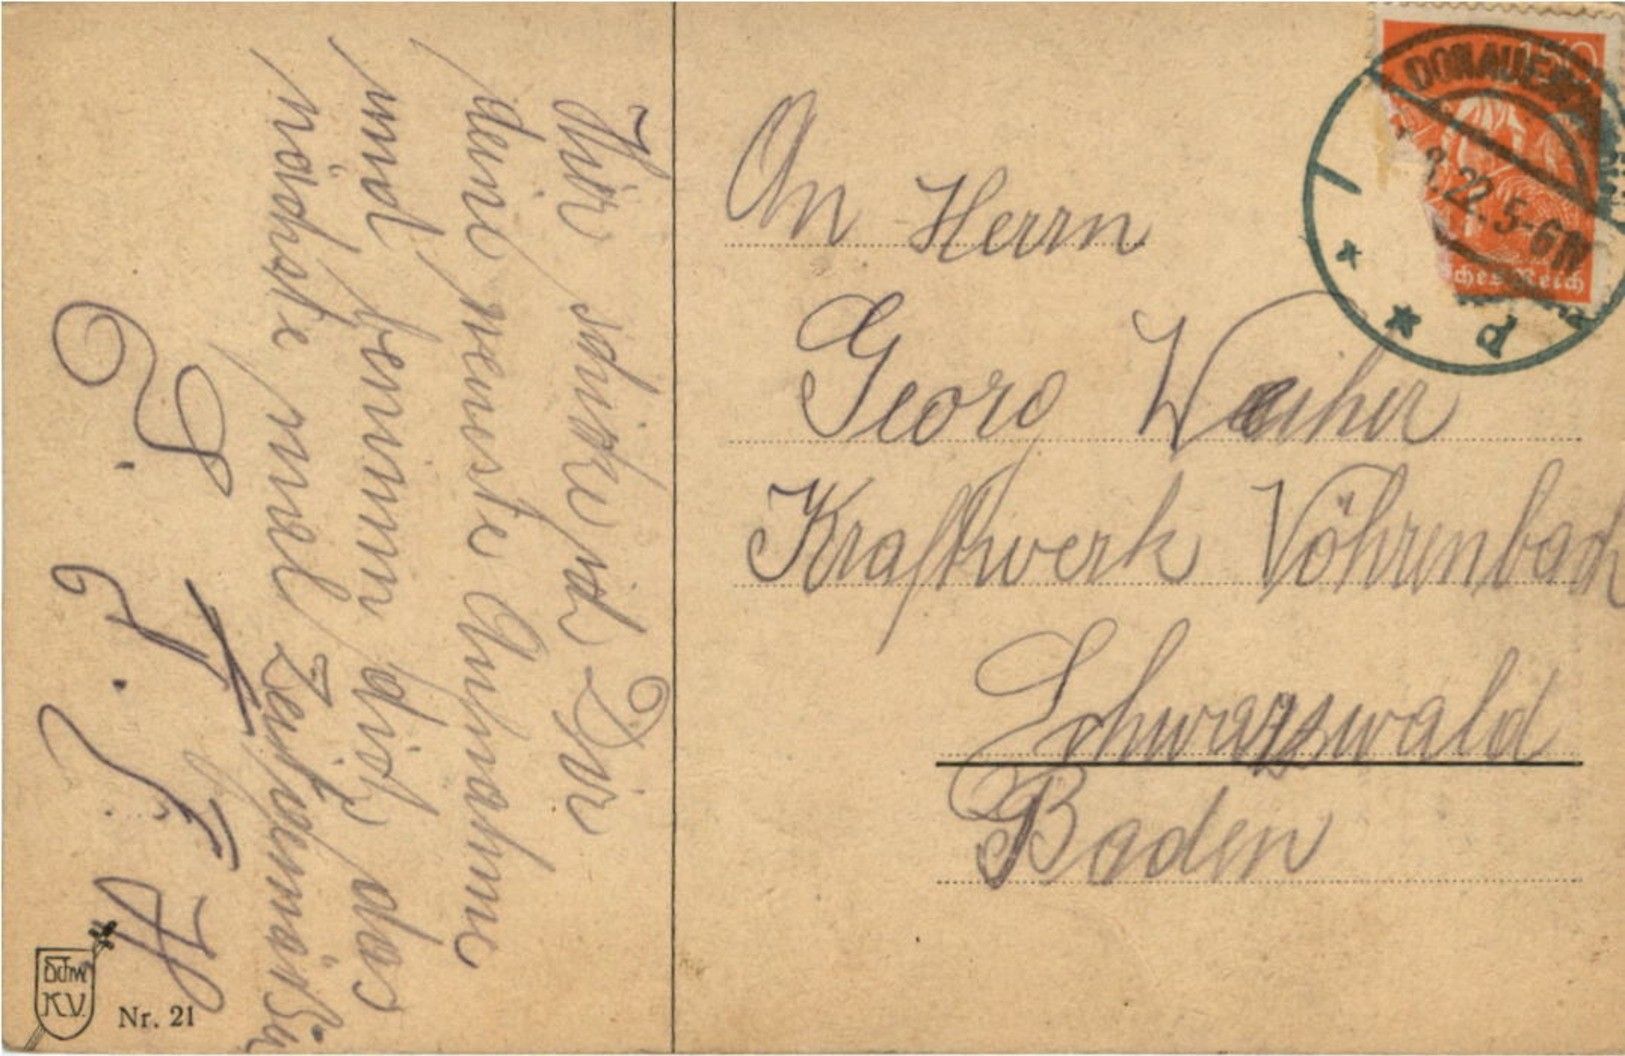 Hir schike ich Dir
deine neuste Aufnahme
und benimm dich das
nächste mal Zeitgemäßig
G. F. H
Schw
K.V.
Nr. 21
An Herrn
Georg Weiher
Kraftwerk Vöhrenbach
Schwarzwald
Baden
DONAUE
150
8.22.5-6N
sches Reich
d